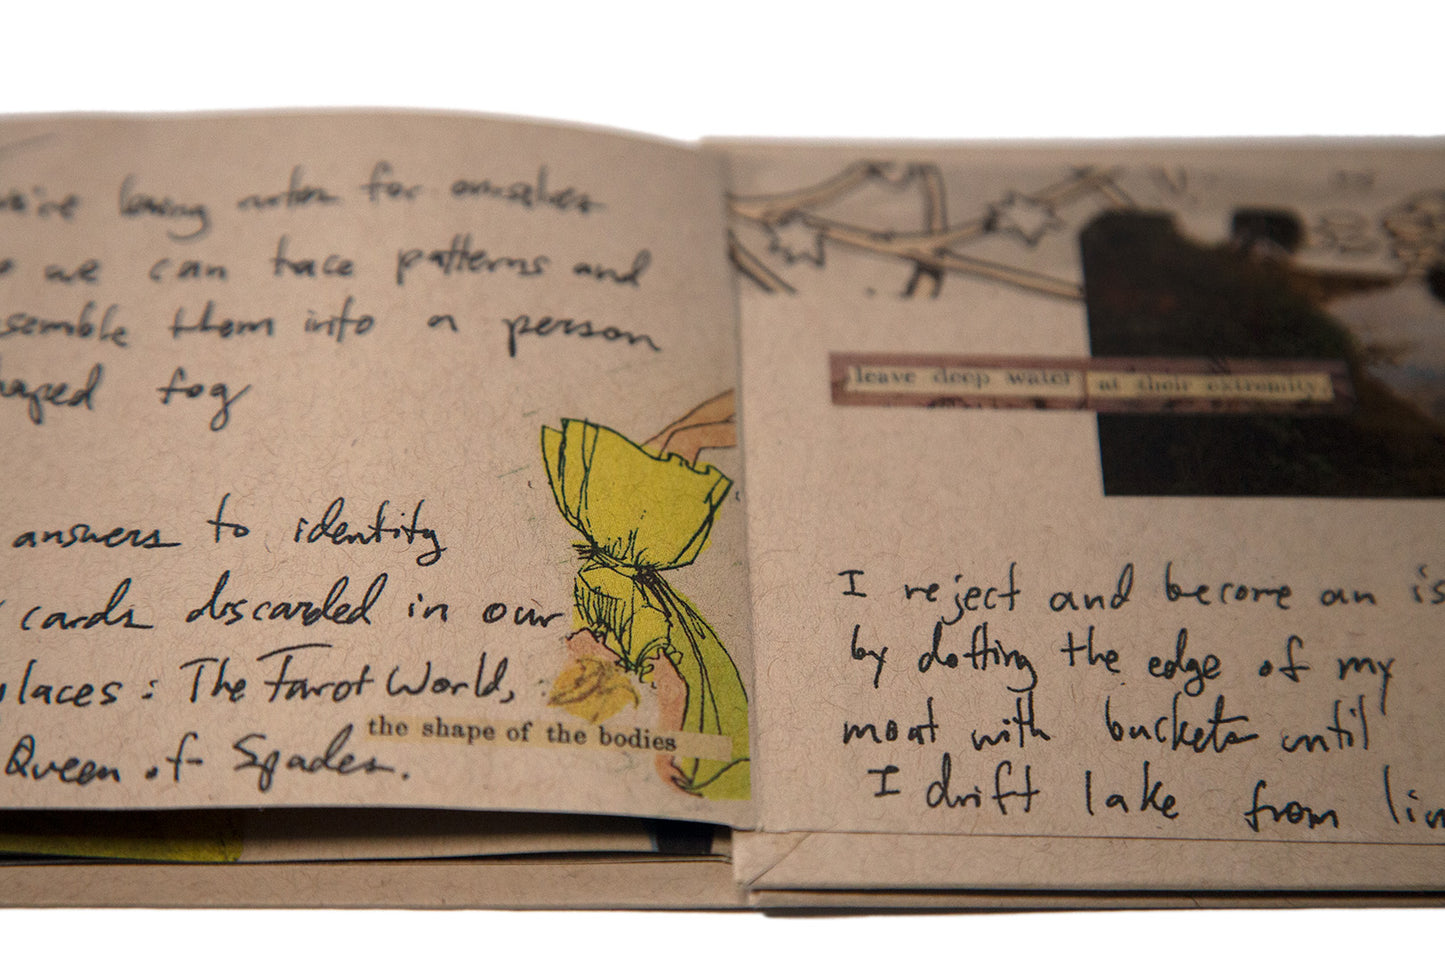 we're leaving notes for ourselves
we can trace patterns and
semble them into a person
haped fog
answers to identity
cards discarded in our
laces: The Tarot World,
Queen of Spades.
the shape of the bodies
leave deep water at their extremity.
I reject and become an is
by dotting the edge of my
moat with buckets until
I drift lake from lin